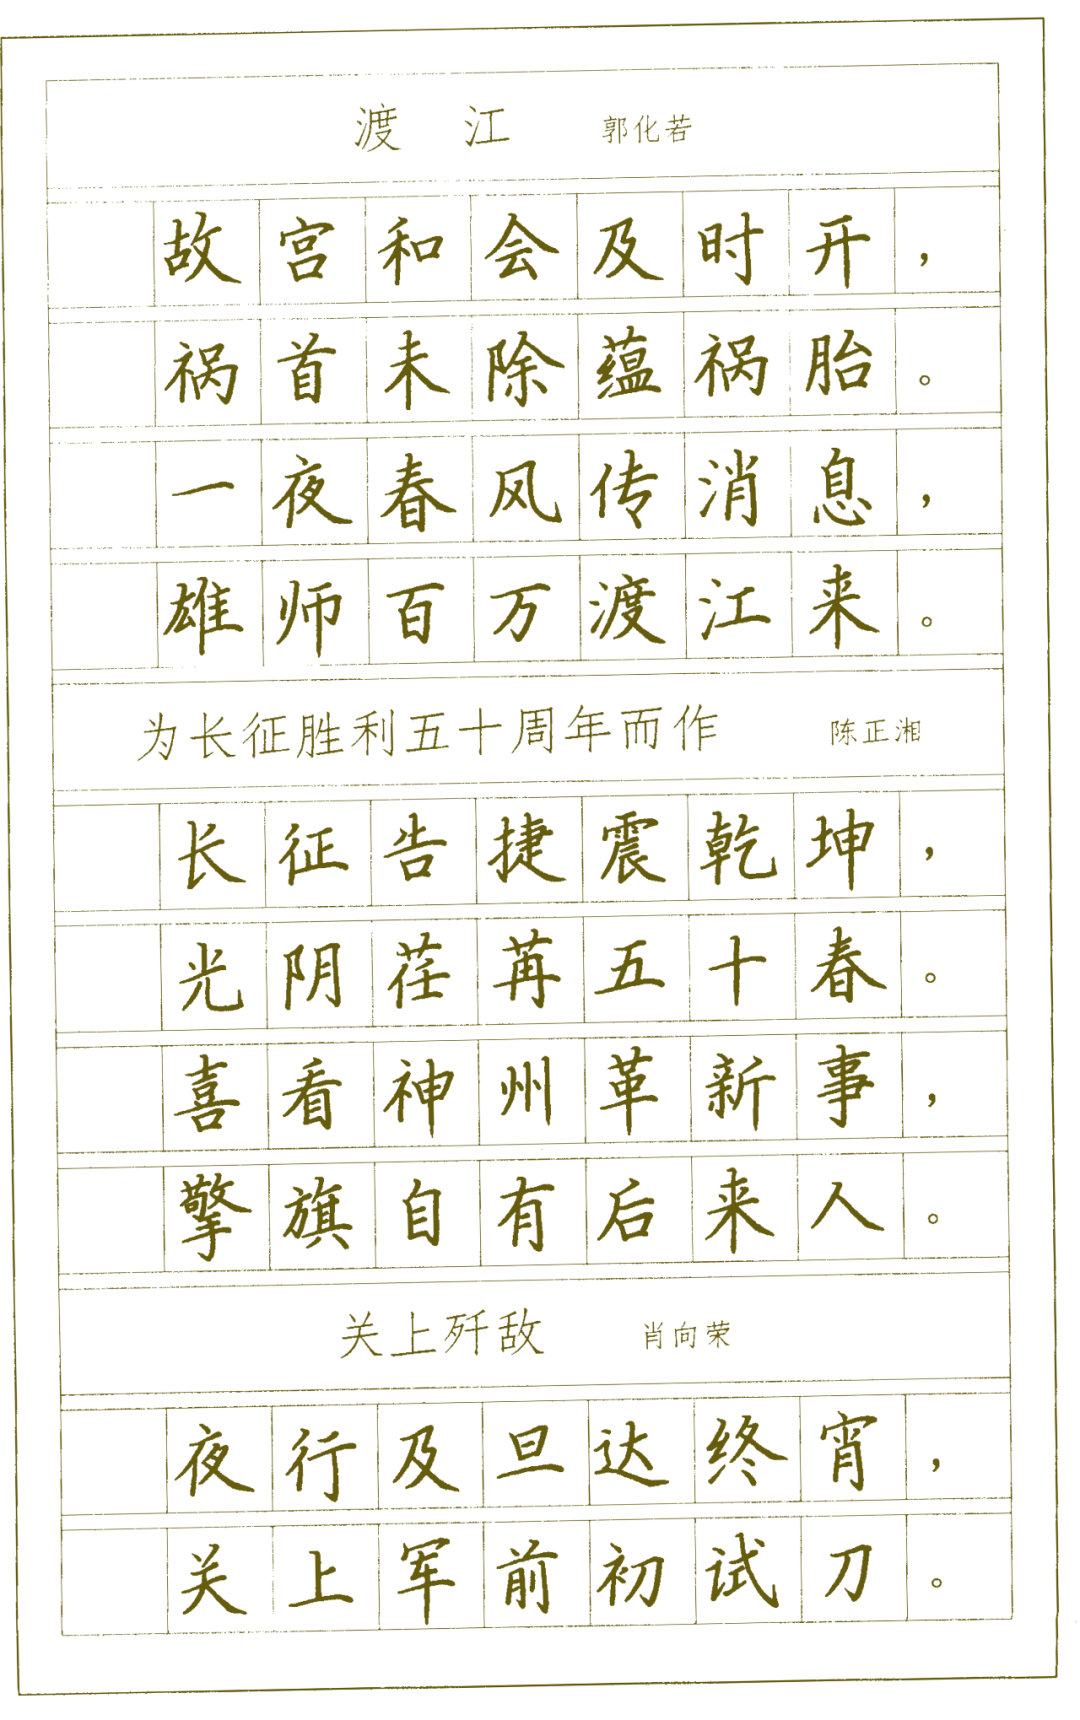 渡 江 郭化若
故宫和会及时开，
祸首未除蕴祸胎。
一夜春风传消息，
雄师百万渡江来。
为长征胜利五十周年而作 陈正湘
长征告捷震乾坤，
光阴荏苒五十春。
喜看神州革新事，
擎旗自有后来人。
关上歼敌 肖向荣
夜行及旦达终宵，
关上军前初试刀。